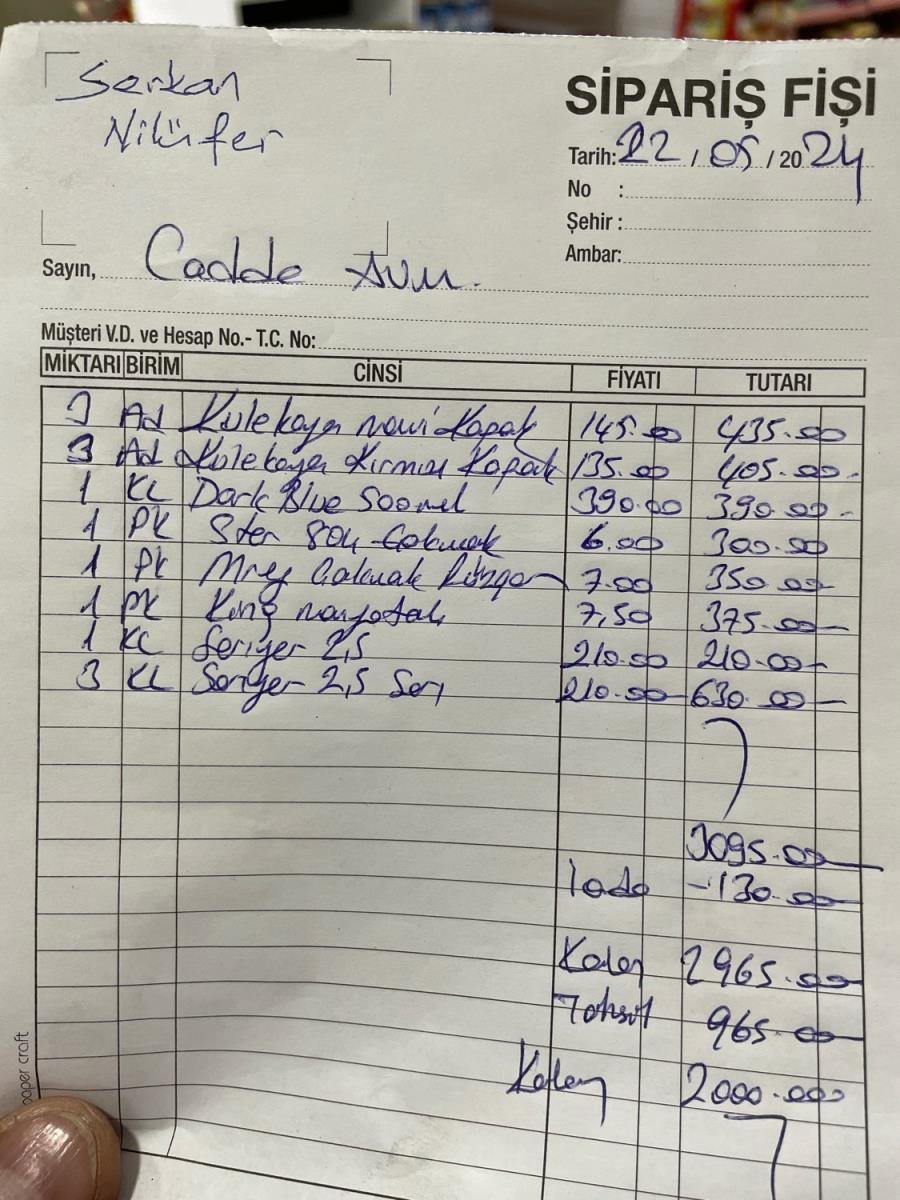 Serkan
Nilüfer
SİPARİŞ FİŞİ
Tarih: 22 / 05 / 2024
No :
Şehir :
Ambar:
Sayın, Cadde Avm.
Müşteri V.D. ve Hesap No.- T.C. No:
MİKTARI BİRİM CİNSİ FİYATI TUTARI
3 Ad Kulekaya mavi Kapak 145.00 435.00
3 Ad Kulekaya Kırmızı Kapak 135.00 405.00
1 KL Dark Blue 500ml 390.00 390.00
1 PK 804 Cakmak 6.00 300.00
1 PK Cakmak Rüzgar 7.00 350.00
1 PK King 7,50 375.00
1 KL Sarıyer 2,5 210.00 210.00
3 KL Sarıyer 2,5 Sarı 210.00 630.00
3095.00
İade -130.00
Kalan 2965.00
Tahsil 965.00
Kalan 2000.000
paper craft